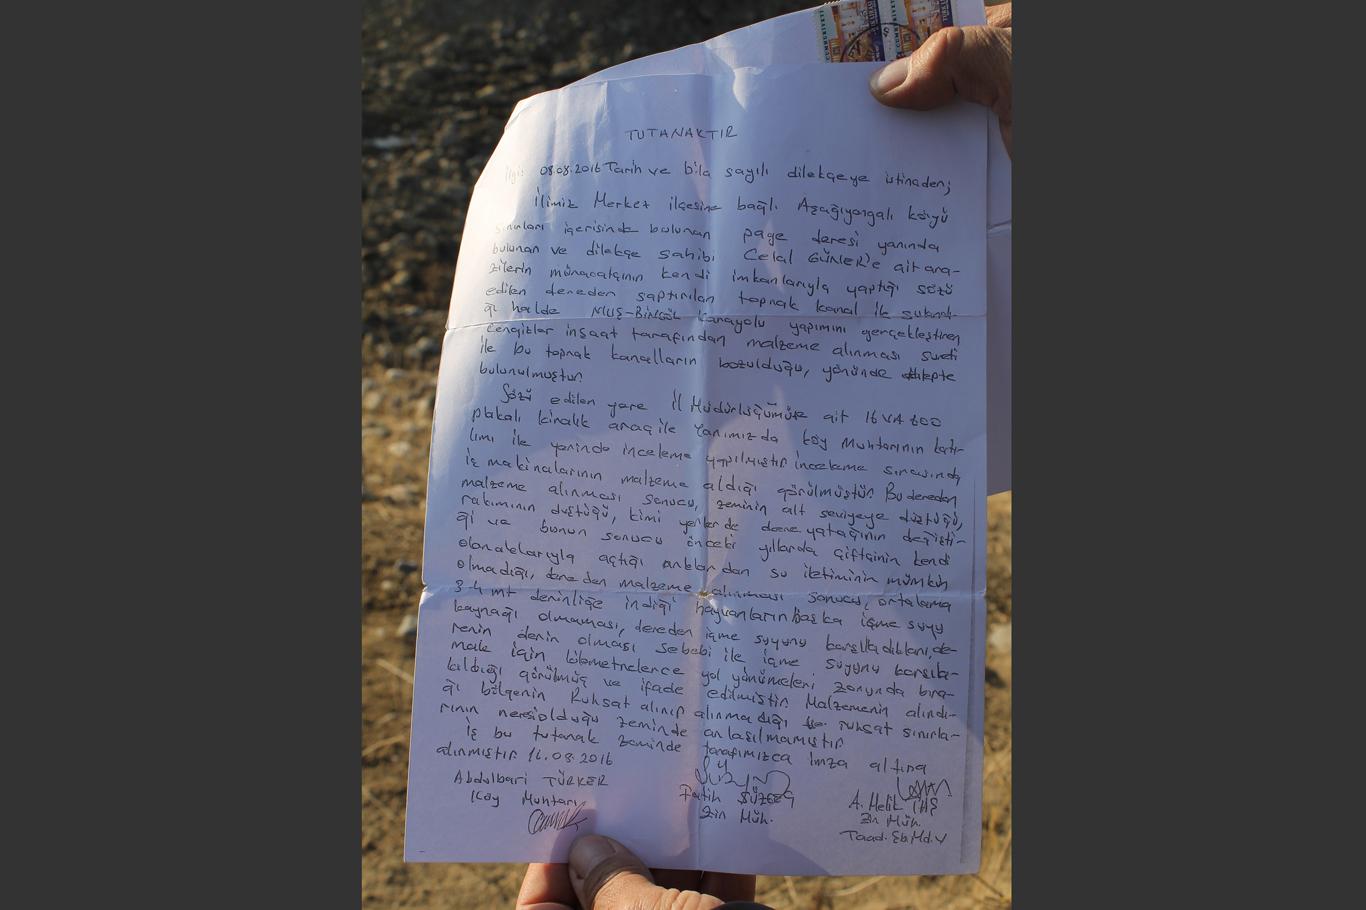 TUTANAKTIR
İlgi: 08.08.2016 Tarih ve bila sayılı dilekçeye istinaden;
İlimiz Merkez ilçesine bağlı Aşağıyongalı köyü
sınırları içerisinde bulunan page deresi yanında
bulunan ve dilekçe sahibi Celal GÜNER'e ait ara-
zilerin müracatçının kendi imkanlarıyla yaptığı sözü
edilen dereden saptırılan toprak kanal ile sulandı-
ğı halde MUŞ-BİNGÖL Karayolu yapımını gerçekleştiren
Cengizler inşaat tarafından malzeme alınması sureti
ile bu toprak kanalların bozulduğu, yönünde
bulunulmuştur.
Sözü edilen yere İl Müdürlüğümüze ait 16 VA 600
plakalı kiralık araç ile Yanımızda köy Muhtarının katı-
lımı ile yerinde inceleme yapılmıştır. inceleme sırasında
iş makinalarının malzeme aldığı görülmüştür. Bu dereden
malzeme alınması sonucu, zeminin alt seviyeye düştüğü,
rakımının düştüğü, kimi yerlerde dere yatağının değişti-
ği ve bunun sonucu önceki yıllarda çiftçinin kendi
olanaklarıyla açtığı arklardan su iletiminin mümkün
olmadığı, dereden malzeme alınması sonucu, ortalama
3-4 mt derinliğe indiği hayvanların başka içme suyu
kaynağı olmaması, dereden içme suyunu karşıladıkları, de-
renin derin olması sebebi ile içme suyunu karşıla-
mak için kilometrelerce yol yürümeleri zorunda bıra-
kıldığı görülmüş ve ifade edilmiştir. Malzemenin alındı-
ğı bölgenin Ruhsat alınıp alınmadığı ve ruhsat sınırla-
rının neresi olduğu zeminde anlaşılmamıştır.
İş bu tutanak zeminde tarafımızca imza altına
alınmıştır. 16.08.2016
Abdulbari TÜRKER
Köy Muhtarı
Fatih
Zir. Müh.
A. Melik
Zir. Müh.